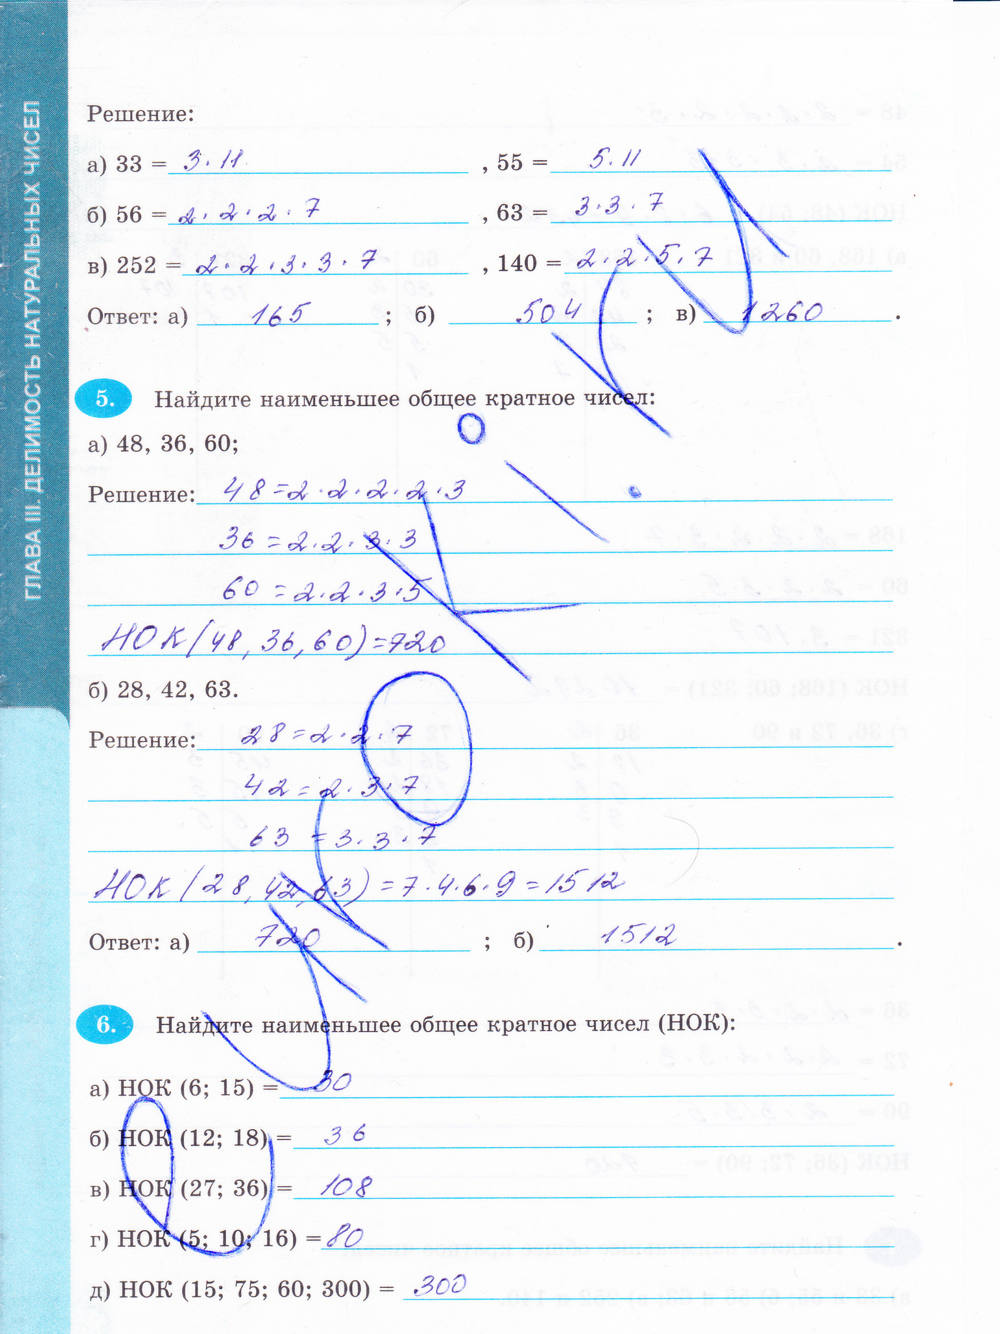 ГЛАВА III. ДЕЛИМОСТЬ НАТУРАЛЬНЫХ ЧИСЕЛ
Решение:
а) 33 = 3·11 , 55 = 5·11
б) 56 = 2·2·2·7 , 63 = 3·3·7
в) 252 = 2·2·3·3·7 , 140 = 2·2·5·7
Ответ: а) 165 ; б) 504 ; в) 1260 .
5. Найдите наименьшее общее кратное чисел:
а) 48, 36, 60;
Решение: 48=2·2·2·2·3
36=2·2·3·3
60=2·2·3·5
НОК(48, 36, 60)=720
б) 28, 42, 63.
Решение: 28=2·2·7
42=2·3·7
63=3·3·7
НОК(28, 42, 63)=7·4·6·9=1512
Ответ: а) 720 ; б) 1512 .
6. Найдите наименьшее общее кратное чисел (НОК):
а) НОК (6; 15) = 30
б) НОК (12; 18) = 36
в) НОК (27; 36) = 108
г) НОК (5; 10; 16) = 80
д) НОК (15; 75; 60; 300) = 300